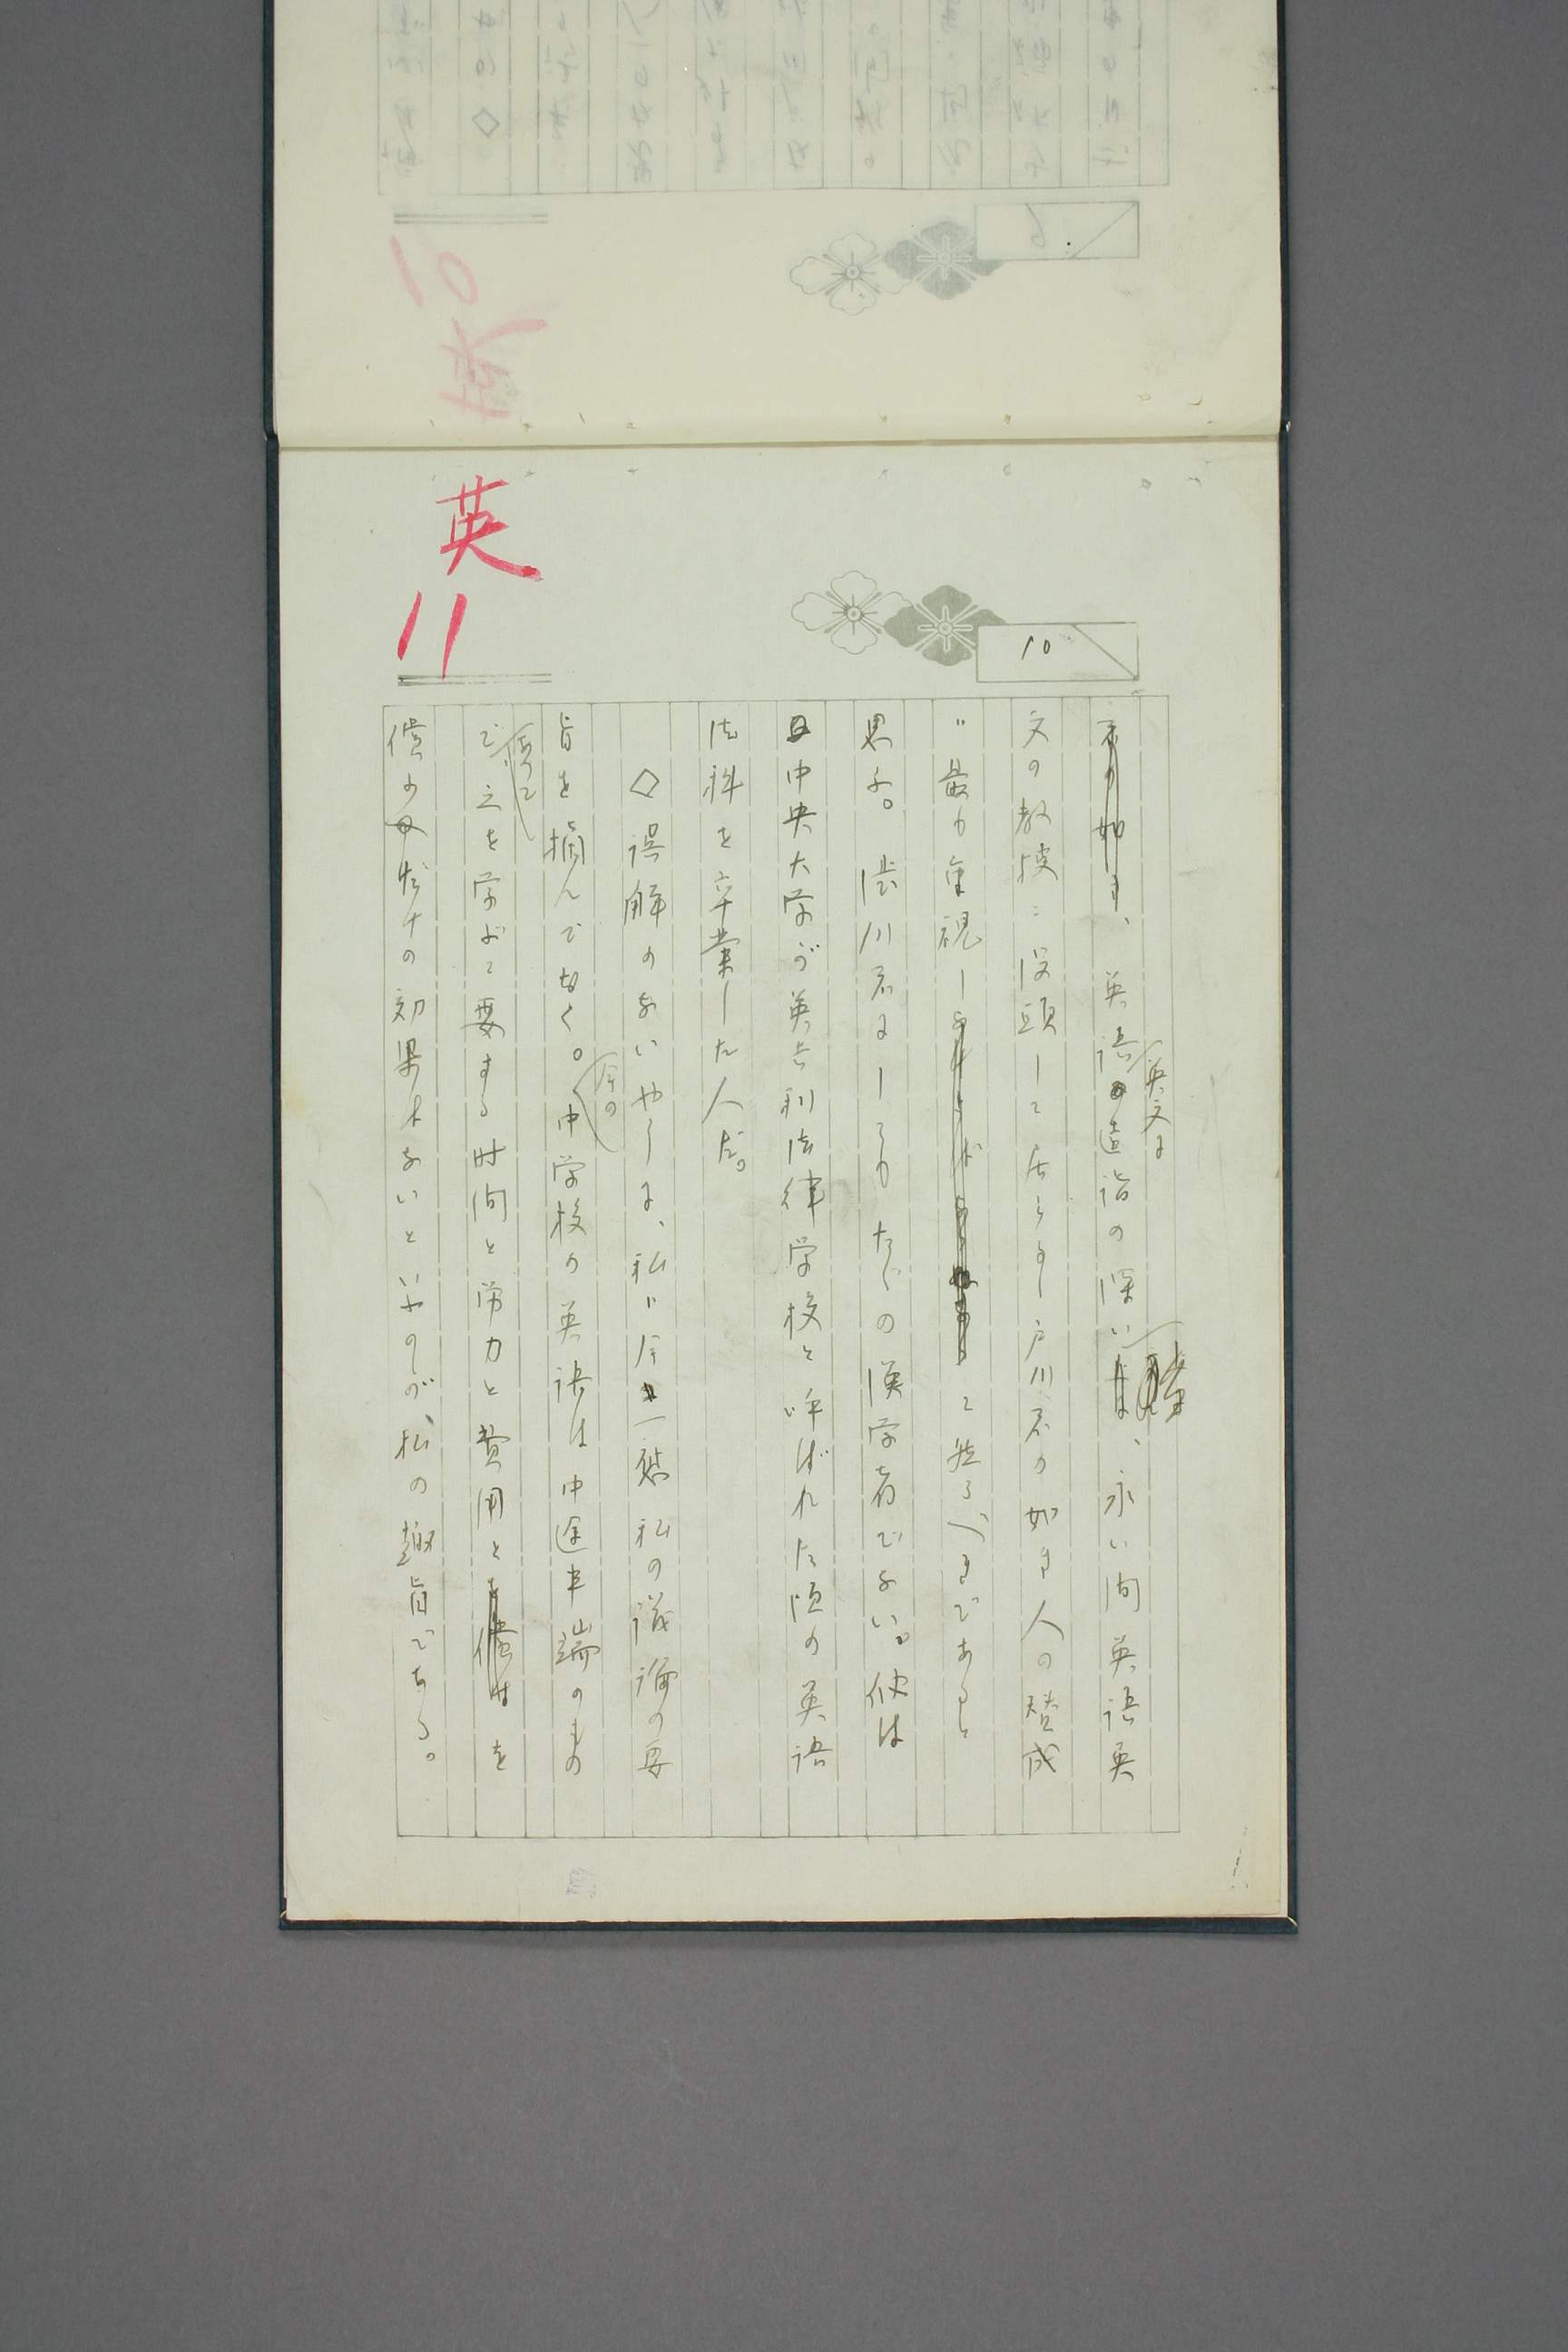 英
11
10
英語英文に造詣の深い、永い間英語英
文の教授に没頭して居らるゝ戸川君の如き人の賛成
は最も重視して然るべきであると
思ふ。渋川君にしてもたゞの漢学者でない。彼は
中央大学が英吉利法律学校と呼ばれた頃の英語
法科を卒業した人だ。
◇誤解のないやうに、私は今一応私の議論の要
旨を摘んでおく。今の中学校の英語は中途半端のもの
で、之を学ぶに要する時間と労力と費用とを
償ふだけの効果はないといふのが、私の趣旨である。